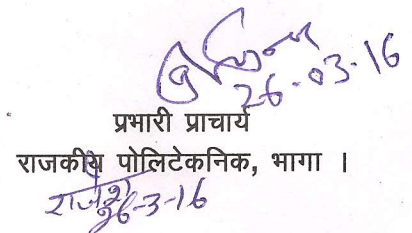 26-03-16
प्रभारी प्राचार्य
राजकीय पोलिटेकनिक, भागा ।
राजेश
26-3-16